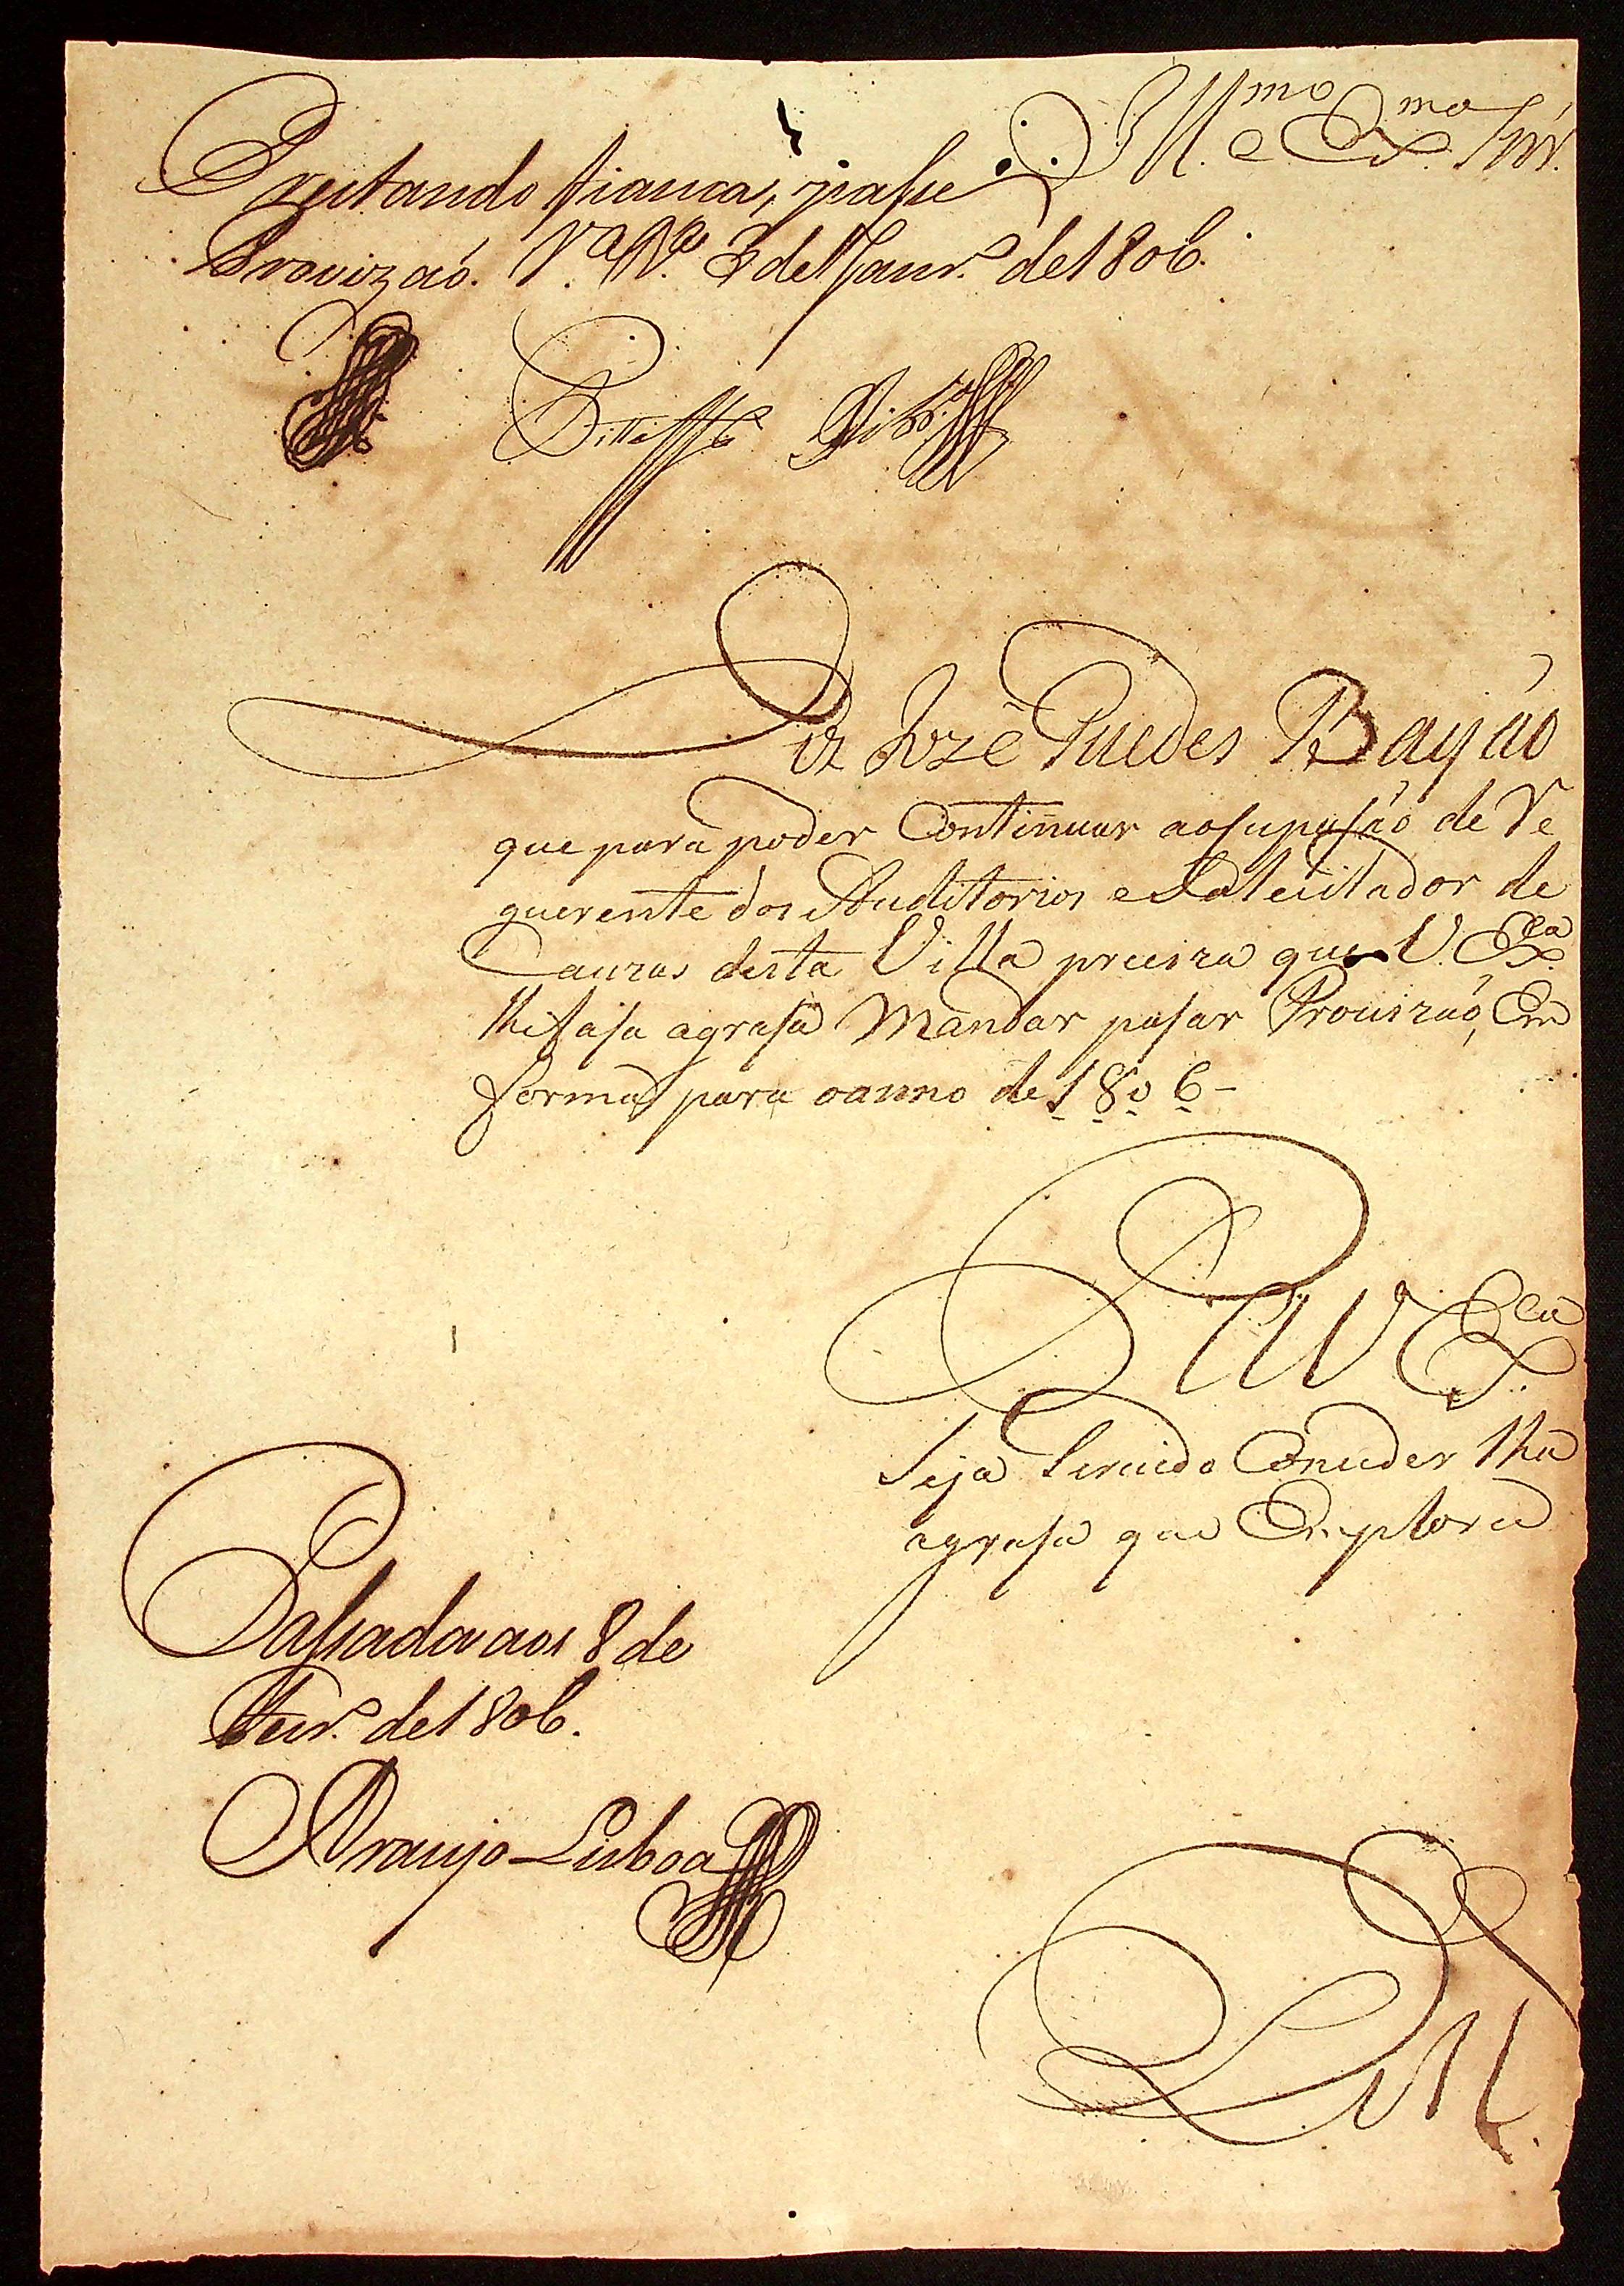 Ill.mo e Ex.mo Snr.
Prestando fiança, passe
Provizaó. V.a R.a 3 de Janr.o de 1806.
Diz Jozé Guedes Bayáo
que para poder Continuar aosupasáo de Re
querente dos Auditorios e Solecitador de
Cauzas desta Villa preciza que V. Ex.cia
lhe fasa agrasa Mandar pasar Provizaó, Em
forma para oanno de 1806-
P. a V. Ex.cia
Seja Servido Conceder lha
agrasa que Emplora
Passada aos 8 de
Fevr.o de 1806.
Araujo Lisboa
E R M.